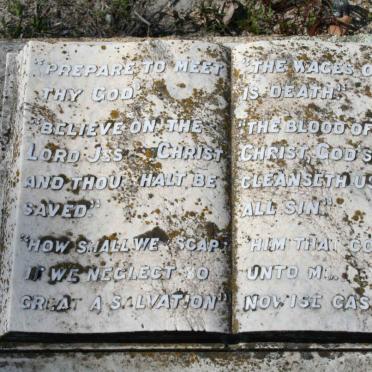 "PREPARE TO MEET
THY GOD"
"BELIEVE ON THE
LORD JSS CHRIST
AND THOU HALT BE
SAVED."
"HOW SHALL WE SCAP
IF WE NEGLECT SO
GREAT A SALVATION"
"THE WAGES O
IS DEATH."
"THE BLOOD OF
CHRIST, GOD'S
CLEANSETH US
ALL SIN."
HIM THAT CO
UNTO M
NOWISE CAS